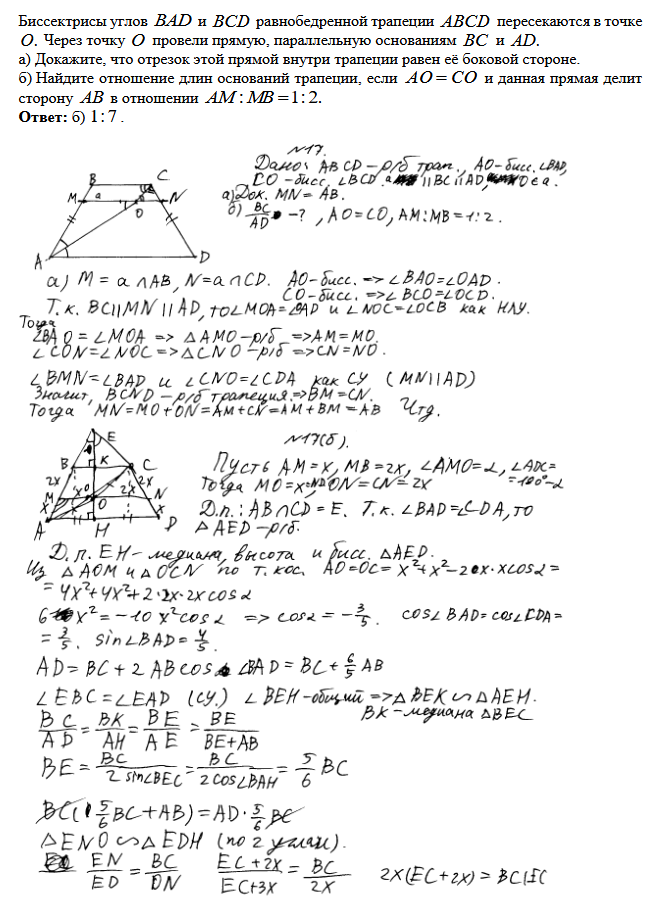 Биссектрисы углов BAD и BCD равнобедренной трапеции ABCD пересекаются в точке
O. Через точку O провели прямую, параллельную основаниям BC и AD.
а) Докажите, что отрезок этой прямой внутри трапеции равен её боковой стороне.
б) Найдите отношение длин оснований трапеции, если AO = CO и данная прямая делит
сторону AB в отношении AM : MB = 1 : 2.
Ответ: б) 1 : 7 .
N17.
Дано: ABCD – р/б трап., AO-бисс. ∠BAD,
CO-бисс. ∠BCD. a || BC || AD, O∈a.
а) Док. MN = AB.
б) BC/AD -?, AO=CO, AM:MB=1:2.
B C
M a N
O
A D
а) M = a ∩ AB, N = a ∩ CD. AO-бисс. => ∠BAO=∠OAD.
CO-бисс. => ∠BCO=∠OCD.
Т.к. BC || MN || AD, то ∠MOA=∠OAD и ∠NOC=∠OCB как НЛУ.
Тогда
∠BAO = ∠MOA => △AMO – р/б => AM = MO.
∠CON=∠NOC => △CNO – р/б => CN = NO.
∠BMN=∠BAD и ∠CNO=∠CDA как СУ (MN || AD)
Значит, BCND – р/б трапеция. => BM = CN.
Тогда MN=MO+ON=AM+CN=AM+BM=AB Чтд.
N17(б).
E
B K C
2x 2x
M x O 2x N
x x
A H D
Пусть AM = x, MB = 2x, ∠AMO=α, ∠ADC=
=180°-α
Тогда MO=x, ON = CN = 2x
Д.п.: AB ∩ CD = E. Т.к. ∠BAD=∠CDA, то
△AED – р/б.
Д.п. EH – медиана, высота и бисс. △AED.
Из △AOM и △OCN по т. кос. AO=OC= x²+x²-2x·x cosα =
= 4x²+4x²+2·2x·2x cosα
6x² = -10x² cosα => cosα = -3/5. cos∠BAD=cos∠CDA=
= 3/5. sin∠BAD=4/5.
AD = BC + 2AB cos∠BAD = BC + 6/5 AB
∠EBC = ∠EAD (СУ.) ∠BEH-общий => △BEK ∽ △AEH.
BK-медиана △BEC
BC/AD = BK/AH = BE/AE = BE/(BE+AB)
BE = BC/(2 sin∠BEC) = BC/(2cos∠BAH) = 5/6 BC
BC(5/6 BC + AB) = AD · 5/6 BC
△ENO ∽ △EDH (по 2 углам).
EN/ED = BC/ON (EC+2x)/(EC+3x) = BC/2x 2x(EC+2x) = BC(EC